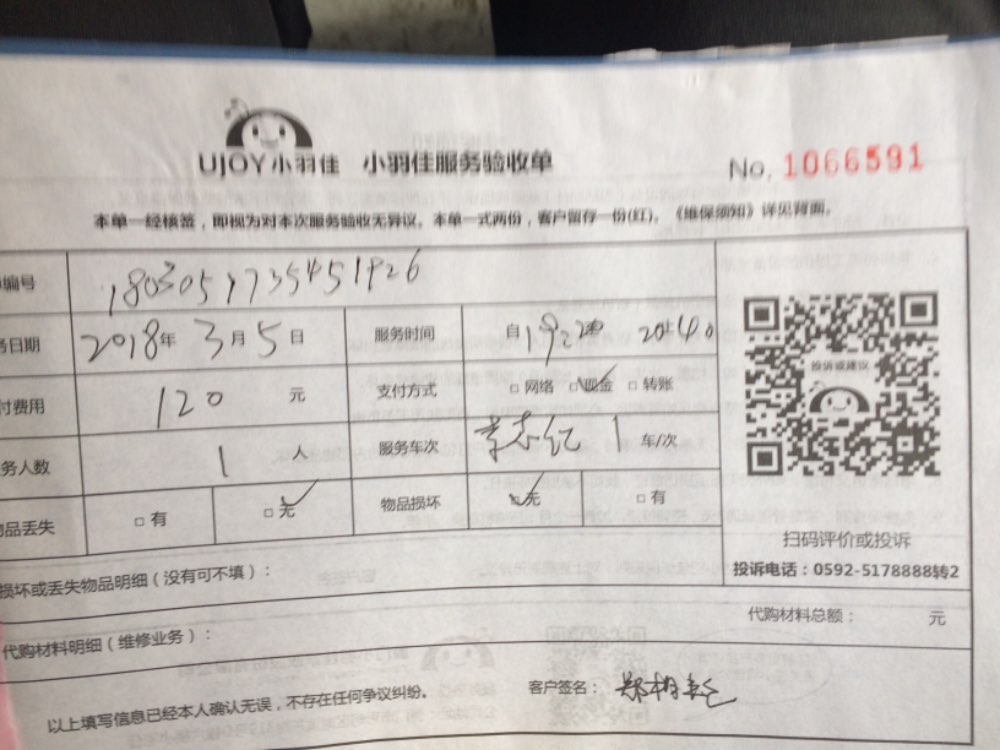 UJOY小羽佳 小羽佳服务验收单 No. 1066591
本单一经核签，即视为对本次服务验收无异议。本单一式两份，客户留存一份(红)。《维保须知》详见背面。
编号 1803051735451926
务日期 2018年 3月5日 服务时间 自 20:40
付费用 120 元 支付方式 □网络 □现金 □转账
务人数 1 人 服务车次 李志红 1 车/次
品丢失 □有 □无 物品损坏 □无 □有
投诉或建议
扫码评价或投诉
投诉电话：0592-5178888转2
损坏或丢失物品明细（没有可不填）：
代购材料明细（维修业务）： 代购材料总额： 元
以上填写信息已经本人确认无误，不存在任何争议纠纷。 客户签名：